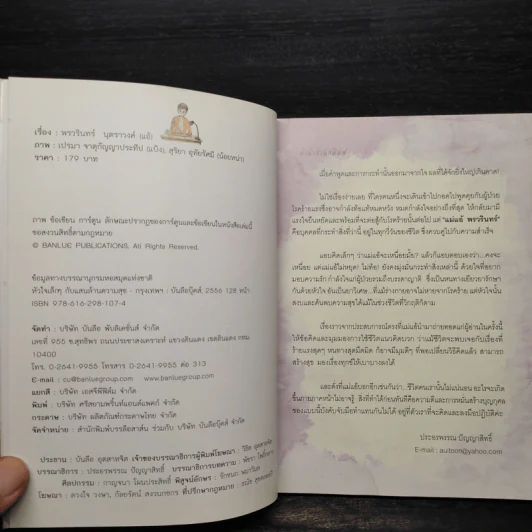 เรื่อง : พรวรินทร์ นุตราวงศ์ (แอ้)
ภาพ : เปรมา จาตุกัญญาประทีป (แป้ง), สุริยา อุทัยรัศมี (น้อยหน่า)
ราคา : 179 บาท
ภาพ ข้อเขียน การ์ตูน ลักษณะปรากฏของการ์ตูนและข้อเขียนในหนังสือเล่มนี้
ขอสงวนสิทธิ์ตามกฎหมาย
© BANLUE PUBLICATIONS, All Rights Reserved.
ข้อมูลทางบรรณานุกรมหอสมุดแห่งชาติ
หัวใจเล็กๆ กับแสนล้านความสุข - กรุงเทพฯ : บันลือบุ๊คส์, 2556 128 หน้า
ISBN 978-616-298-107-4
จัดทำ : บริษัท บันลือ พับลิเคชั่นส์ จำกัด
เลขที่ 955 ซ.สุทธิพร ถนนประชาสงเคราะห์ แขวงดินแดง เขตดินแดง กทม
10400
โทร. 0-2641-9955 โทรสาร 0-2641-9955 ต่อ 313
E-mail : cu@banluegroup.com www.banluegroup.com
แยกสี : บริษัท เอสซีพีฟิล์ม จำกัด
พิมพ์ : บริษัท ศรีสยามพริ้นท์แอนด์แพคก์ จำกัด
กระดาษ : บริษัท ผลิตภัณฑ์กระดาษไทย จำกัด
จัดจำหน่าย : สำนักพิมพ์บรรลือสาส์น ร่วมกับ บริษัท บันลือบุ๊คส์ จำกัด
ประธาน : บันลือ อุตสาหจิต เจ้าของบรรณาธิการผู้พิมพ์โฆษณา : วิธิต อุตสาหจิต
บรรณาธิการ : ประอรพรรณ ปัญญาสิทธิ์ บรรณาธิการบทความ :
ศิลปกรรม : กาญจนา โดนประสิทธิ์ พิสูจน์อักษร :
โฆษณา : ดวงใจ วงษา, ที่ปรึกษากฎหมาย :
เมื่อคำพูดและการกระทำนั้นออกมาจากใจ ผลที่ได้จักยิ่งใหญ่เกินคาด!
ไม่ใช่เรื่องง่ายเลย ที่ใครคนหนึ่งจะเดินเข้าไปกอดไปพูดคุยกับผู้ป่วย
โรคร้ายแรงซึ่งอาจกำลังท้อแท้หมดหวัง หมดกำลังใจอย่างถึงที่สุด ให้กลับมามี
แรงใจยืนหยัดและพร้อมที่จะต่อสู้กับโรคร้ายนั้นต่อไป แต่ "แม่แอ้ พรวรินทร์"
คือบุคคลที่กระทำสิ่งที่ว่านี้ อยู่ในทุกวี่วันของชีวิต ซึ่งควบคู่ไปกับความสำเร็จ
แอบคิดเล็กๆ ว่าแม่แอ้จะเหนื่อยมั้ย? แล้วก็แอบตอบเองว่า...คงจะ
เหนื่อย แต่แม่แอ้ไม่หยุด! ไม่ท้อ! ยังคงมุ่งมั่นกระทำสิ่งเหล่านี้ ด้วยใจที่อยาก
มอบความรักกำลังใจแก่ผู้ป่วยรวมถึงบรรดาญาติ ซึ่งเป็นหนทางเยียวยารักษา
กันด้วยหัวใจ อันเป็นยาวิเศษ...ที่แม้ร่างกายอาจไม่หายจากโรคร้าย แต่หัวใจนั้น
สงบและค้นพบความสุขได้แม้ในช่วงชีวิตที่วิกฤติก็ตาม
เรื่องราวจากประสบการณ์ตรงที่แม่แอ้นำมาถ่ายทอดแก่ผู้อ่านในครั้งนี้
ให้ข้อคิดและมุมมองการใช้ชีวิตแนวคิดบวก ว่าแม้ชีวิตจะพบเจอกับเรื่องที่
ร้ายแรงสุดๆ หนทางสุดมืดมิด ก็อาจมีมุมเล็กๆ ที่พอเปลี่ยนวิธีคิดแล้ว สามารถ
สร้างสุข มองเรื่องทุกข์ให้เบาบางลงได้
และสิ่งที่แม่แอ้บอกอีกเช่นกันว่า. ชีวิตคนเรานั้นไม่แน่นอน อะไรจะเกิด
ขึ้นภายภาคหน้าไม่อาจรู้ สิ่งที่ทำได้ก่อนทันทีคือความดีและการหมั่นสร้างบุญกุศล
ของแบบนี้บังคับจับมือทำแทนกันไม่ได้ อยู่ที่ตัวเราที่จะคิดและลงมือปฏิบัติค่ะ
ประอรพรรณ ปัญญาสิทธิ์
E-mail : au.toon@yahoo.com